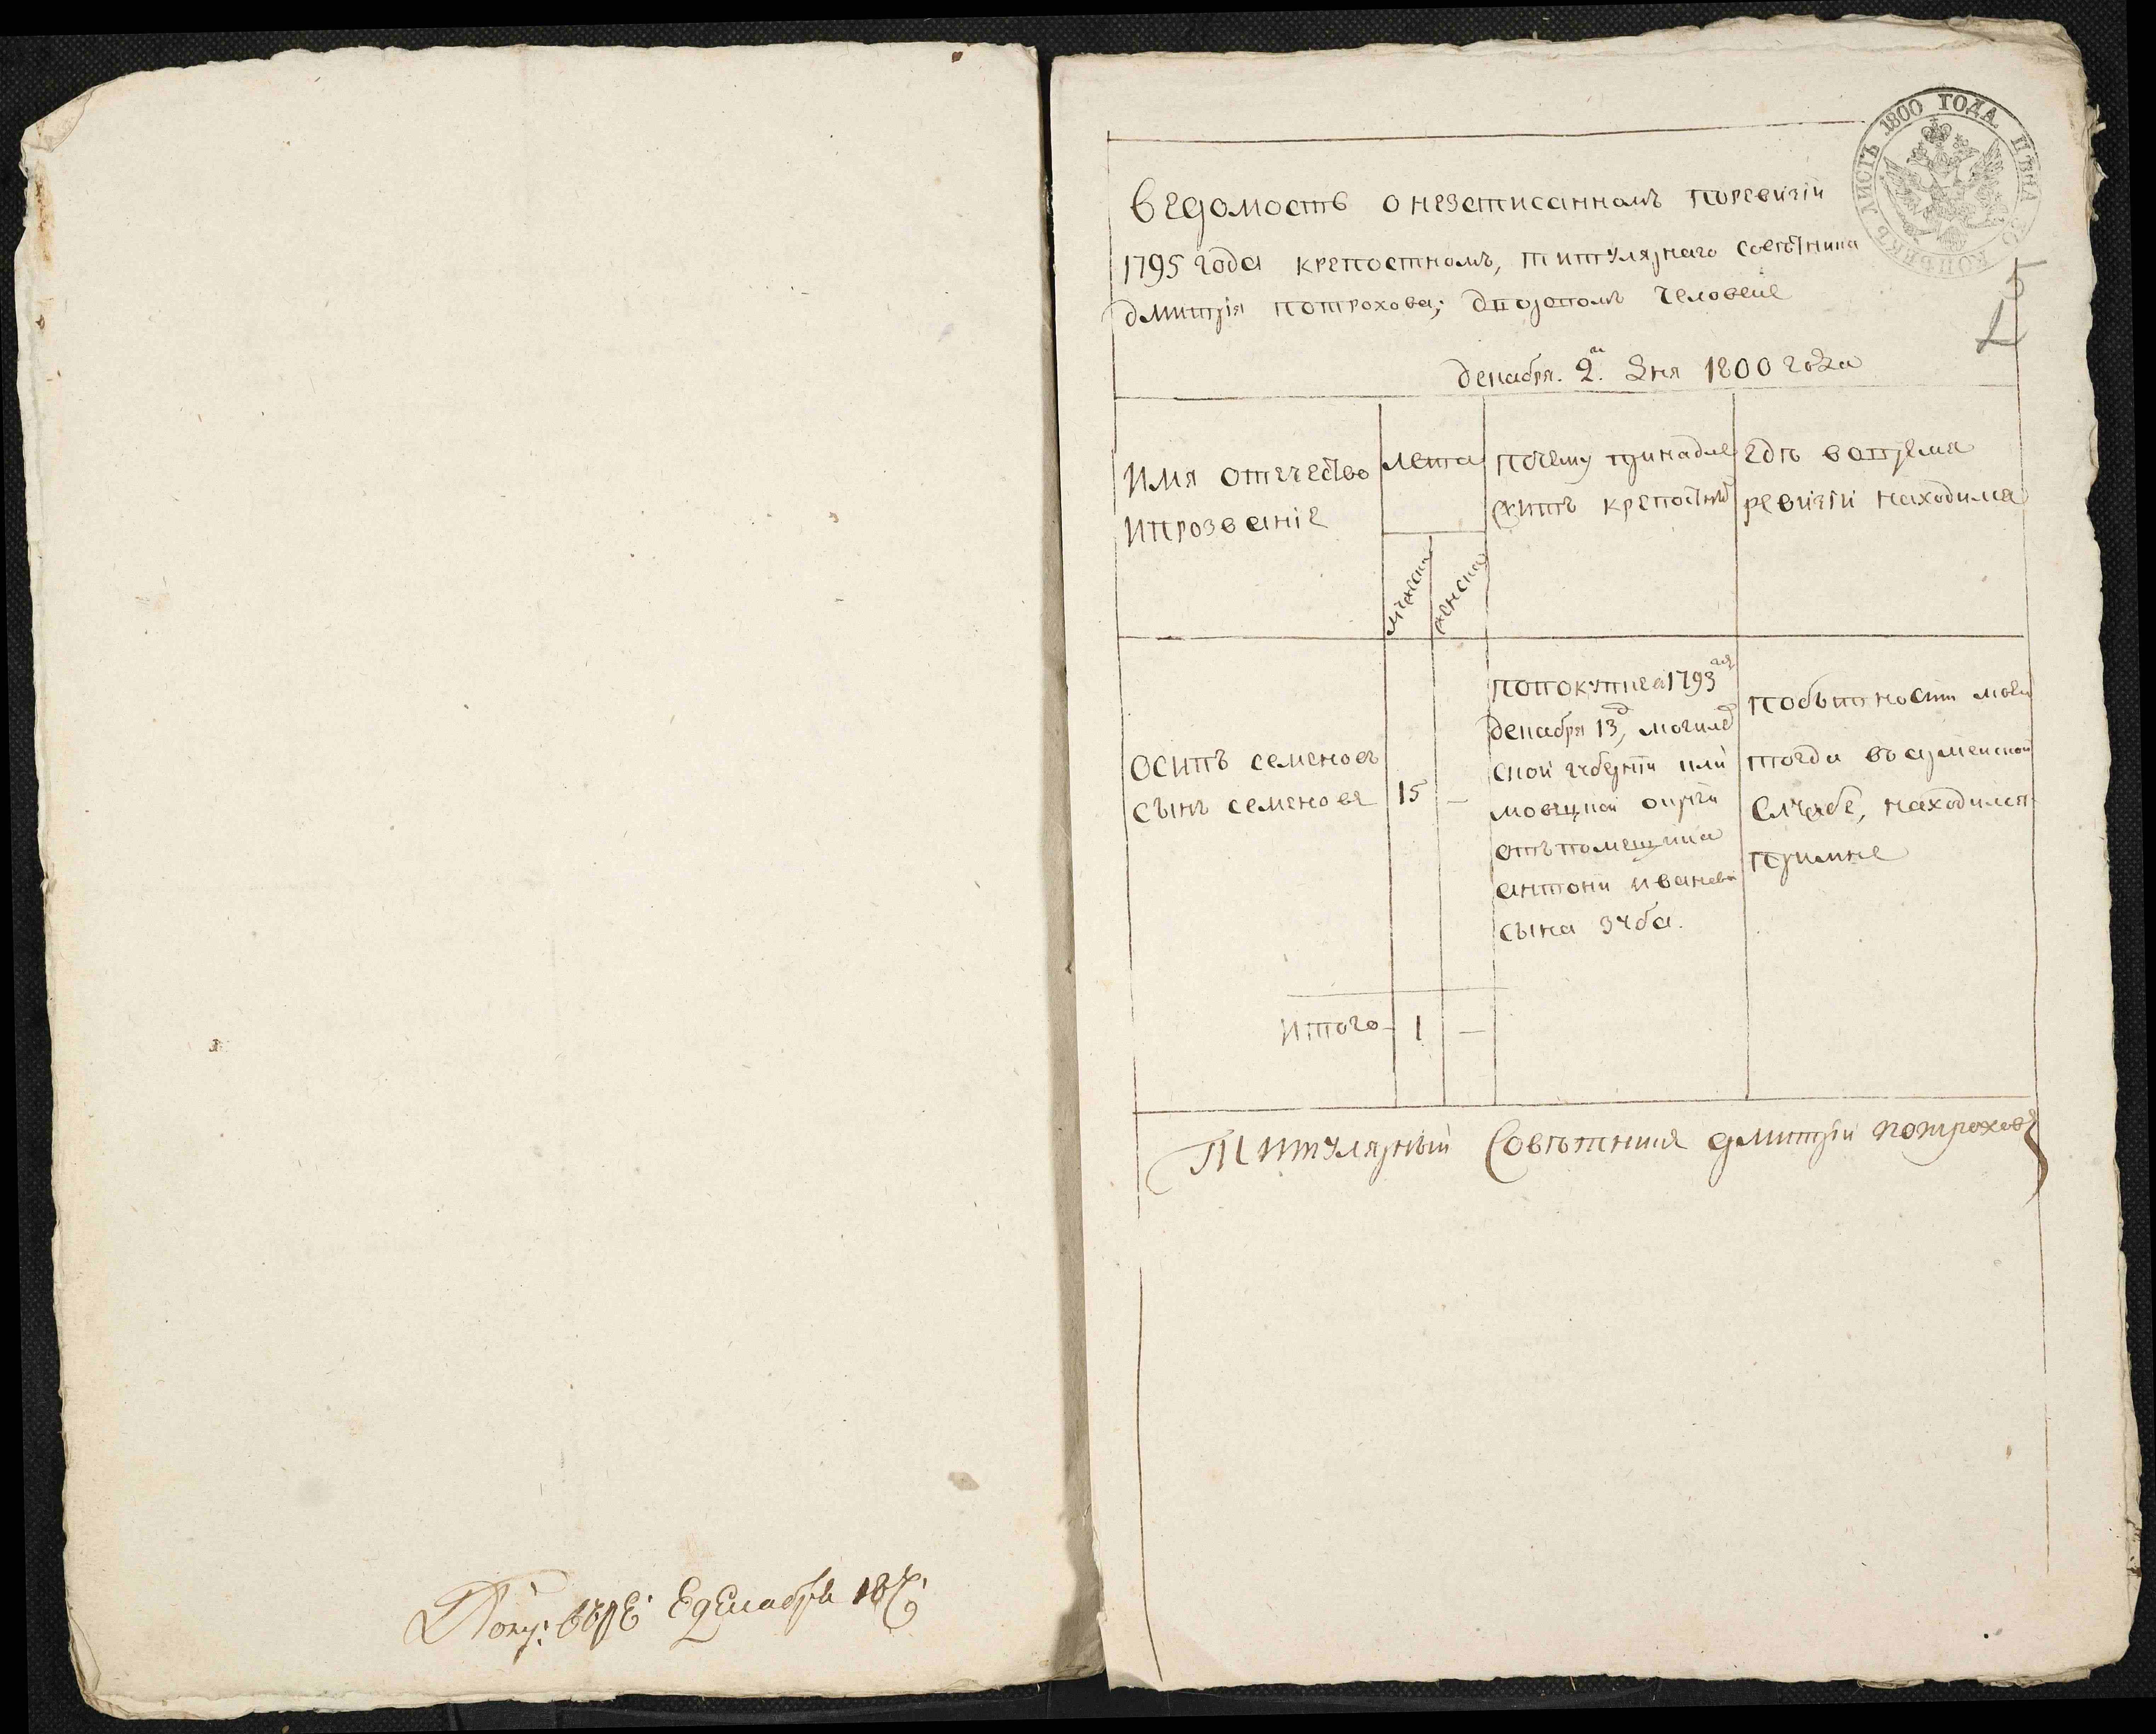 ведомость онезаписанномъ поревизіи
1795 года крепостномъ, титулярнаго советника
дмитрія потрохова, дворовомъ человеке
декабря. 2. дня 1800 года
5
имя отечество
ипрозваніе
лета
мужеска
женска
почему принадле
житъ крепостный
гдѣ вовремя
ревизіи находился
осипъ семеновъ
сынъ семеновъ
15 —
попокупке 1793
декабря 13, могилев
ской губерніи кли
мовецкой округи
отъ помещика
антони иванова
сына зуба.
побытности моей
тогда въ армейской
службе, находился
примне
итого — 1 —
Титулярный Советникъ дмитрій потроховъ
декабря
ЛИСТЪ 1800 ГОДА ЦѢНА КОПѢЕКЪ